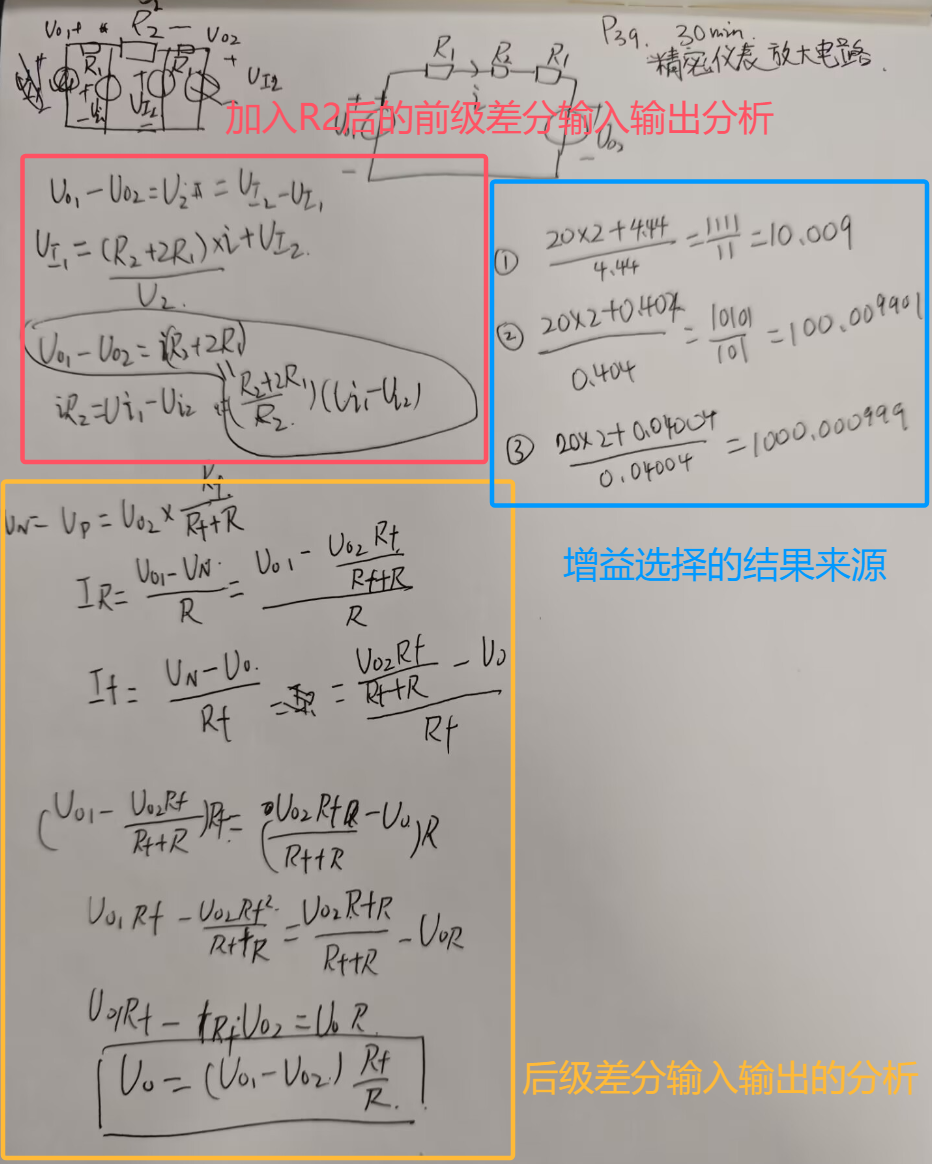 P39. 30min.
精密仪表放大电路.
U01+ R2 − U02
R1 R1 +
UI2
R1 R2 R1
i
加入R2后的前级差分输入输出分析
U01 − U02 = U2 = UI2 − UI1
UI1 = (R2+2R1)×i + UI2
U2.
U01 − U02 = i(R2+2R1)
iR2 = Ui1 − Ui2 = (R2+2R1/R2)(Ui1−Ui2)
① 20×2+4.44/4.44 = 1111/11 = 10.009
② 20×2+0.404/0.404 = 10101/101 = 100.009901
③ 20×2+0.04004/0.04004 = 1000.000999
增益选择的结果来源
UN = UP = U02 × Rf/Rf+R
IR = U01−UN/R = U01 − U02Rf/Rf+R/R
If = UN−U0/Rf = U02Rf/Rf+R − U0/Rf
(U01 − U02Rf/Rf+R)Rf = (U02Rf/Rf+R − U0)R
U01Rf − U02Rf²/Rf+R = U02RfR/Rf+R − U0R
U01Rf − RfU02 = U0R
U0 = (U01−U02) Rf/R.
后级差分输入输出的分析